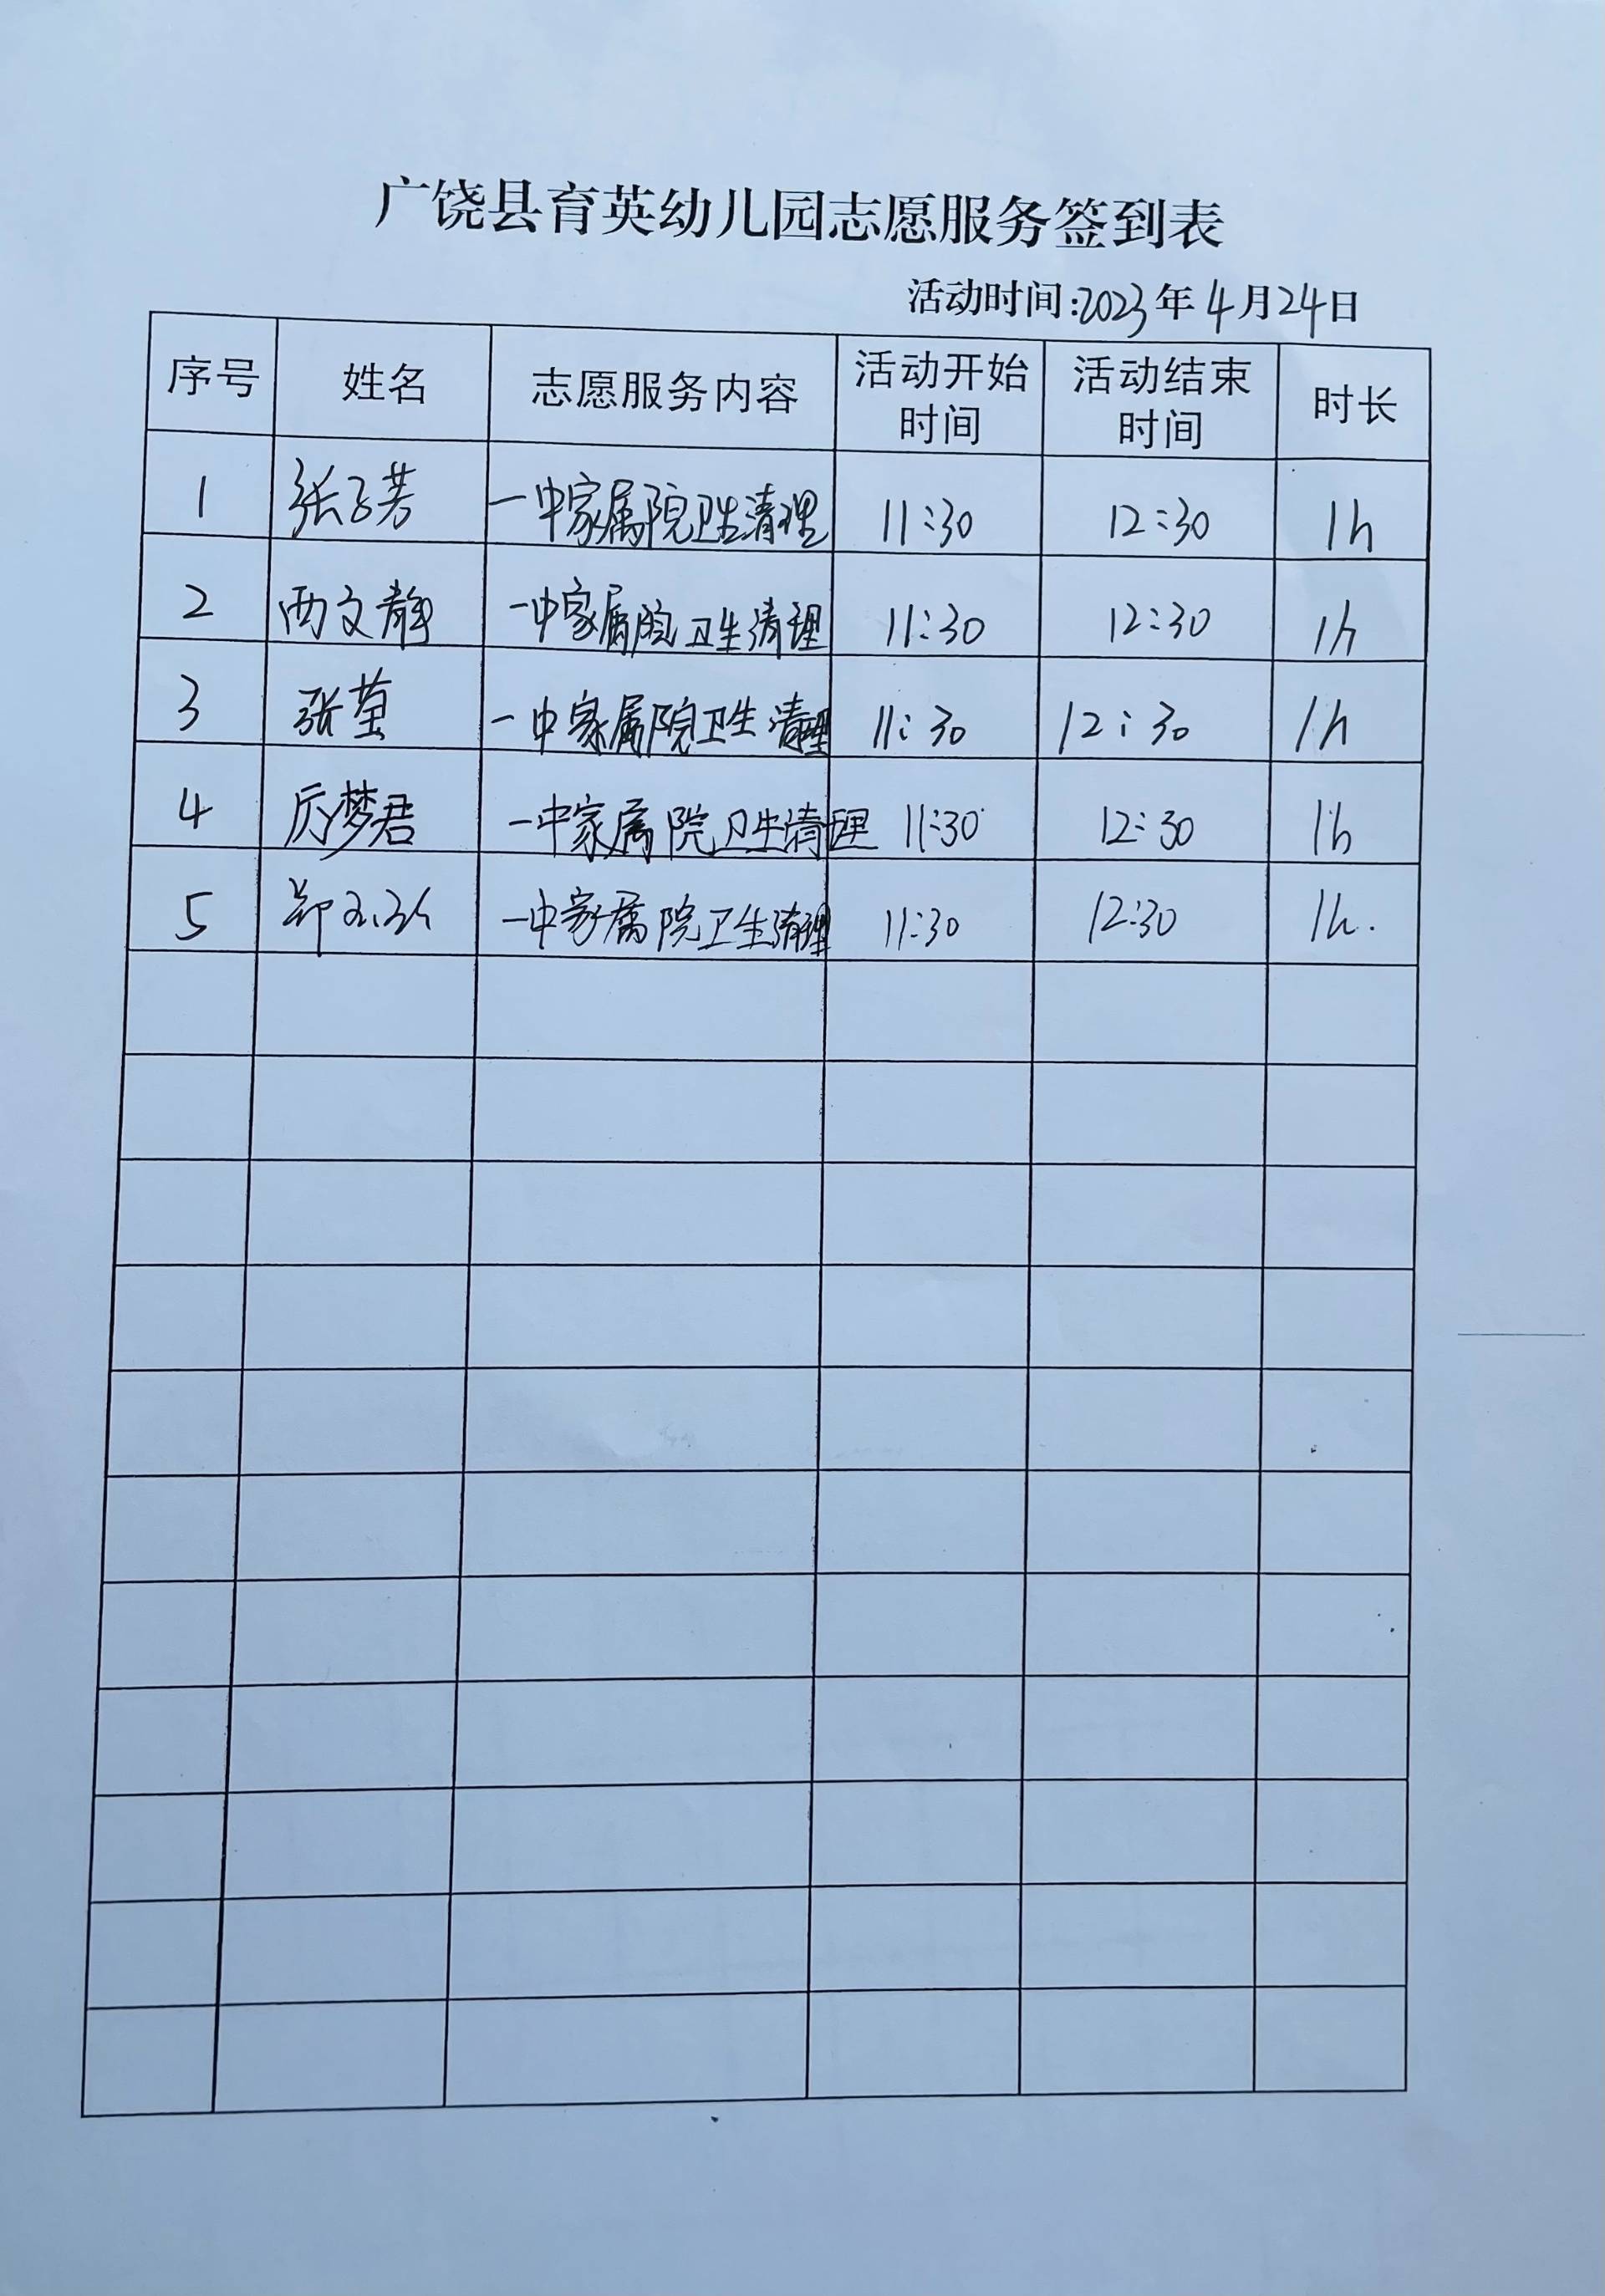 广饶县育英幼儿园志愿服务签到表
活动时间:2023年4月24日
序号 姓名 志愿服务内容 活动开始时间 活动结束时间 时长
1 张子芳 一中家属院卫生清理 11:30 12:30 1h
2 西文静 一中家属院卫生清理 11:30 12:30 1h
3 张莹 一中家属院卫生清理 11:30 12:30 1h
4 厉梦君 一中家属院卫生清理 11:30 12:30 1h
5 郑 一中家属院卫生清理 11:30 12:30 1h.